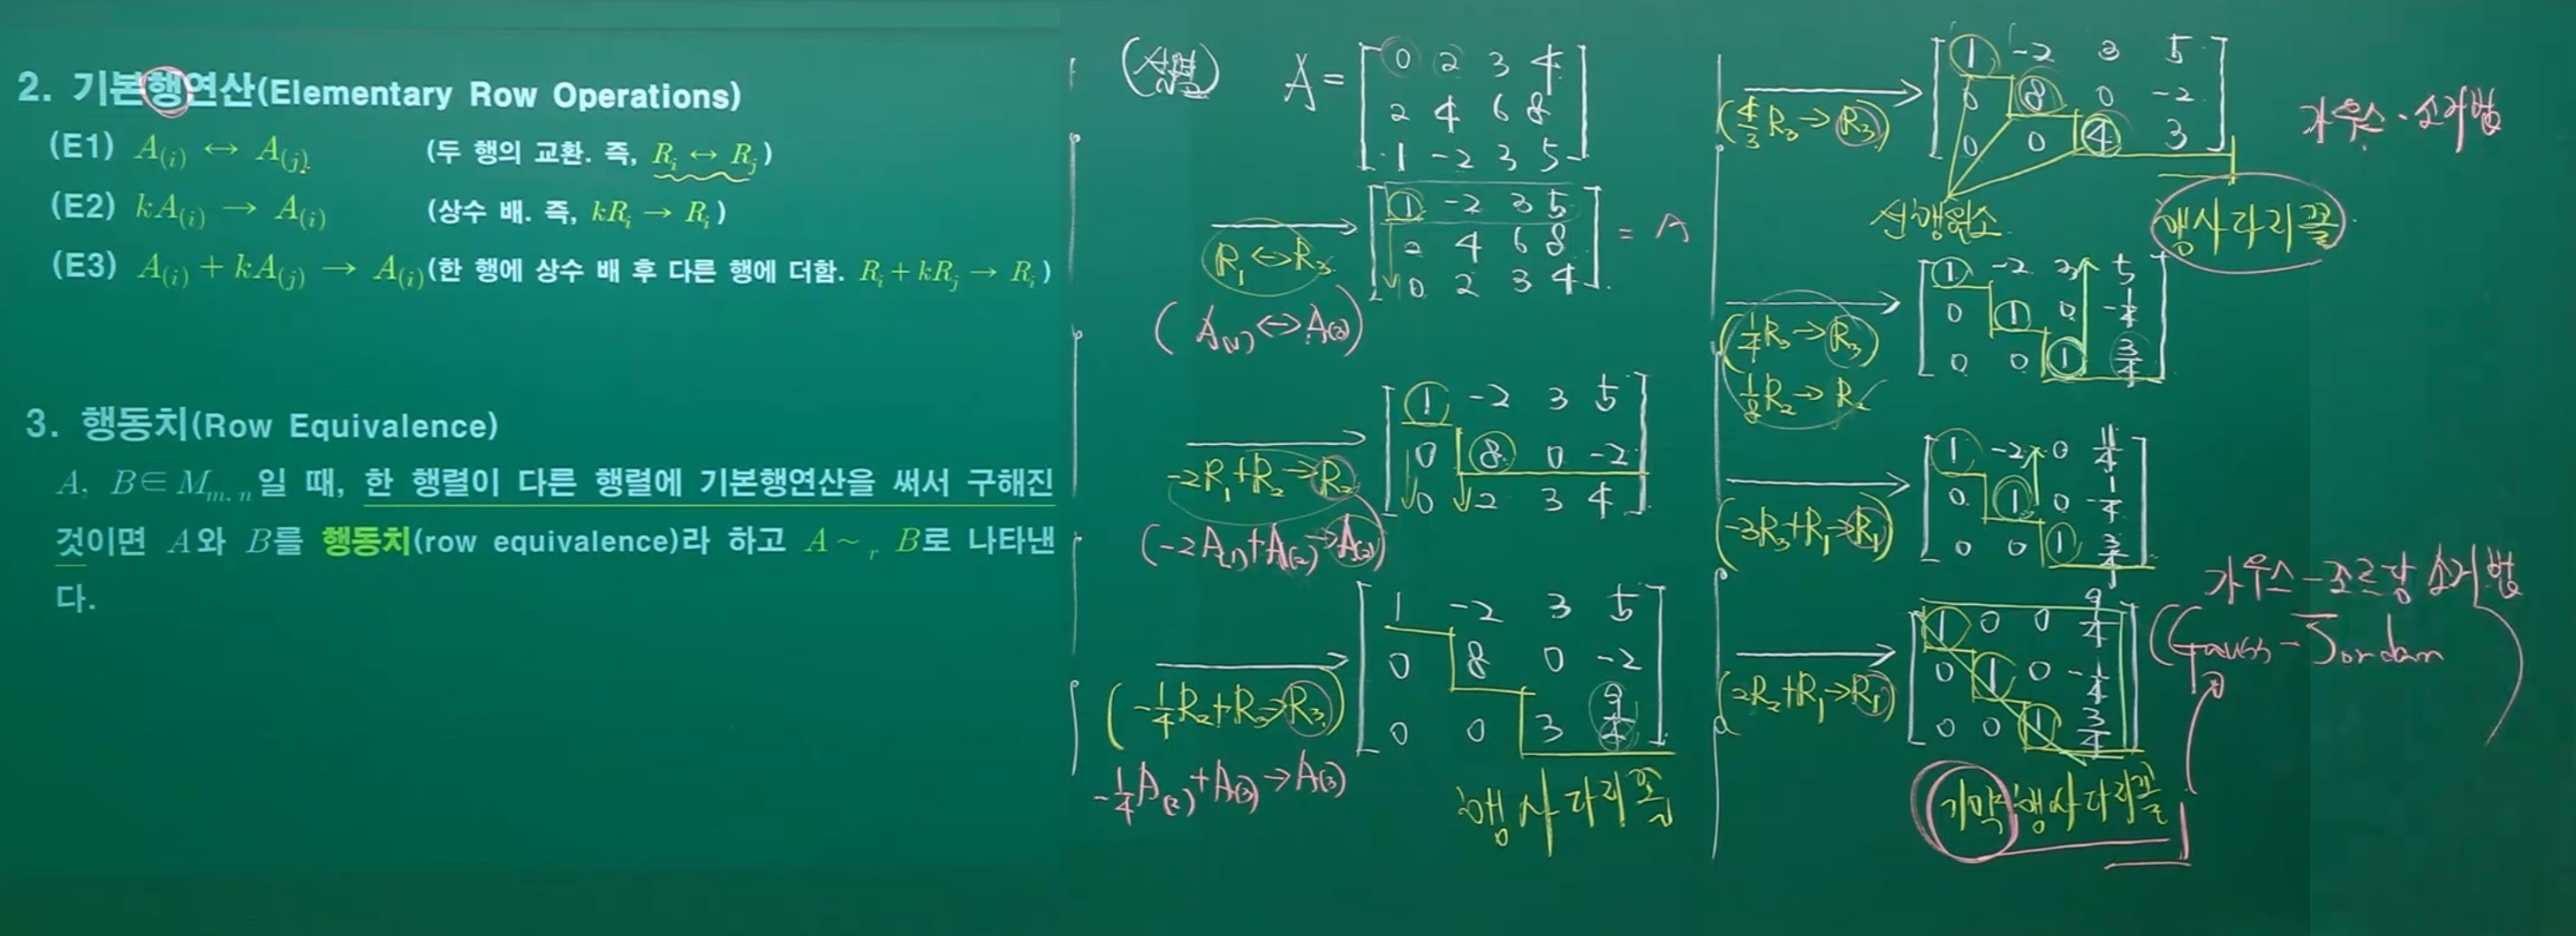 2. 기본행연산(Elementary Row Operations)
(E1) A(i) ↔ A(j). (두 행의 교환. 즉, Ri ↔ Rj)
(E2) kA(i) → A(i) (상수 배. 즉, kRi → Ri)
(E3) A(i) + kA(j) → A(i) (한 행에 상수 배 후 다른 행에 더함. Ri + kRj → Ri)
3. 행동치(Row Equivalence)
A, B∈Mm, n일 때, 한 행렬이 다른 행렬에 기본행연산을 써서 구해진
것이면 A와 B를 행동치(row equivalence)라 하고 A ~r B로 나타낸
다.
A = [0 2 3 4
2 4 6 8
1 -2 3 5]
R1 ↔ R3
(A(1) ↔ A(3))
[1 -2 3 5
2 4 6 8
0 2 3 4] = A
-2R1+R2→R2
(-2A(1)+A(2)→A(2))
[1 -2 3 5
0 8 0 -2
0 2 3 4]
(-1/4R2+R3→R3)
-1/4A(2)+A(3)→A(3)
[1 -2 3 5
0 8 0 -2
0 0 3 9/4]
행사다리꼴
(4/3R3→R3)
[1 -2 3 5
0 8 0 -2
0 0 4 3]
가우스·소거법
선행원소
행사다리꼴
(1/4R3→R3
1/8R2→R2
[1 -2 3 5
0 1 0 -1/4
0 0 1 3/4]
(-3R3+R1→R1)
[1 -2 0 11/4
0 1 0 -1/4
0 0 1 3/4]
(2R2+R1→R1)
[1 0 0 9/4
0 1 0 -1/4
0 0 1 3/4]
가우스-조르당 소거법
(Gauss-Jordan)
기약행사다리꼴